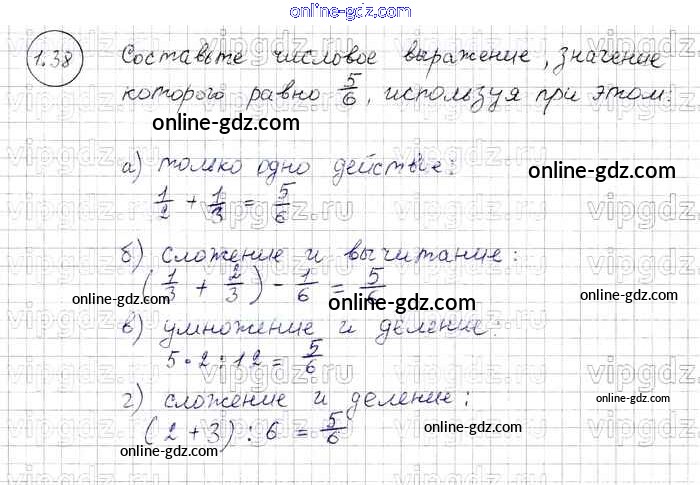 online-gdz.com
1.38 Составьте числовое выражение, значение
которого равно 5/6, используя при этом:
online-gdz.com
online-gdz.com
а) только одно действие:
online-gdz.com
1/2 + 1/3 = 5/6
online-gdz.com
б) сложение и вычитание:
(1/3 + 2/3) - 1/6 = 5/6
online-gdz.com
online-gdz.com
online-gdz.com
в) умножение и деление:
5 · 2 : 12 = 5/6
online-gdz.com
г) сложение и деление:
(2 + 3) : 6 = 5/6
online-gdz.com
online-gdz.com
vipgdz.ru